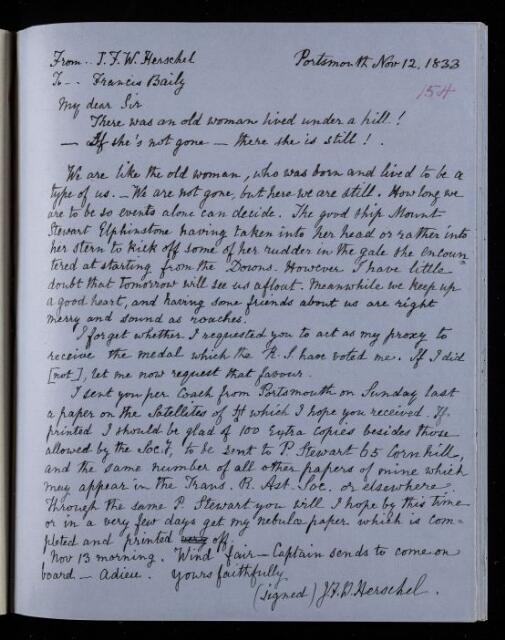 From.. J.F.W. Herschel Portsmouth Nov 12. 1833
To -- Francis Baily
154
My dear Sir
There was an old woman lived under a hill!
— If she's not gone — there she is still!.
We are like the old woman, who was born and lived to be a
type of us. — We are not gone, but here we are still. How long we
are to be so events alone can decide. The good ship Mount
Stewart Elphinstone having taken into her head or rather into
her stern to kick off some of her rudder in the gale she encoun=
tered at starting from the Downs. However I have little
doubt that tomorrow will see us afloat. Meanwhile we keep up
a good heart, and having some friends about us are right
merry and sound as roaches.
I forget whether I requested you to act as my proxy to
receive the medal which the R.S have voted me. If I did
[not], let me now request that favour.
I sent you per Coach from Portsmouth on Sunday last
a paper on the Satellites of ♅ which I hope you received. If
printed I should be glad of 100 Extra copies besides those
allowed by the Socy, to be sent to P. Stewart 65 Cornhill,
and the same number of all other papers of mine which
may appear in the Trans. R. Ast. Soc. or elsewhere.
Through the same P. Stewart you will I hope by this time
or in a very few days get my nebulæ paper which is com-
pleted and printed off.
Nov 13 morning. Wind fair — Captain sends to come on
board — Adieu. Yours faithfully
(signed) J.F.W. Herschel.